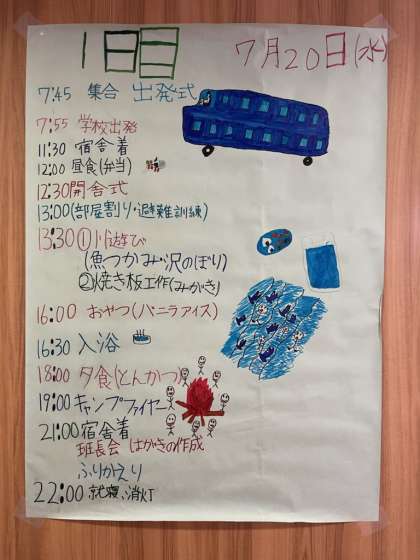 1日目
7月20日(水)
7:45 集合 出発式
7:55 学校出発
11:30 宿舎着
12:00 昼食(弁当)
12:30 開舎式
13:00(部屋割り・避難訓練)
13:30①川遊び
(魚つかみ・沢のぼり)
②焼き板工作(みがき)
16:00 おやつ(バニラアイス)
16:30 入浴
18:00 夕食(とんかつ)
19:00 キャンプファイヤー
21:00 宿舎着
班長会 はがきの作成
ふりかえり
22:00 就寝、消灯